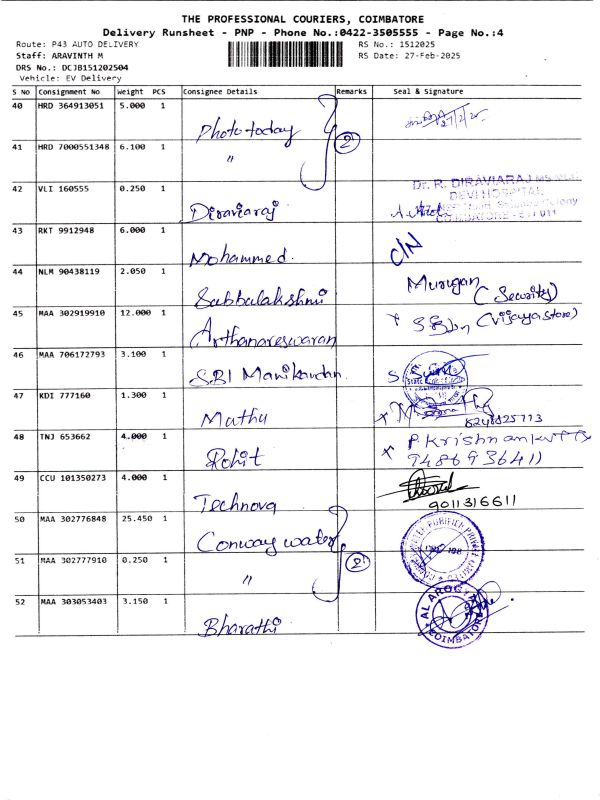 THE PROFESSIONAL COURIERS, COIMBATORE
Delivery Runsheet - PNP - Phone No.:0422-3505555 - Page No.:4
Route: P43 AUTO DELIVERY
RS No.: 1512025
Staff: ARAVINTH M
RS Date: 27-Feb-2025
DRS No.: DCJB151202504
Vehicle: EV Delivery
S No Consignment No Weight PCS Consignee Details Remarks Seal & Signature
40 HRD 364913051 5.000 1 Photo today 27/2/25
41 HRD 7000551348 6.100 1 " 2
42 VLI 160555 0.250 1 Diraviaraj
Dr. R. DIRAVIARAJ
DEVI HOSPITAL
COIMBATORE
43 RKT 9912948 6.000 1 Mohammed. C/N
44 NLM 90438119 2.050 1 Subbalakshmi Murugan (Security)
45 MAA 302919910 12.000 1 Arthanareswaran (Vijaya store)
46 MAA 706172793 3.100 1 SBI Manikandn
47 KDI 777160 1.300 1 Muthu
48 TNJ 653662 4.000 1 Rohit P. Krishnankutty
9486936411
49 CCU 101350273 4.000 1 Technova
9011316611
50 MAA 302776848 25.450 1 Conway water
51 MAA 302777910 0.250 1 " 2
52 MAA 303053403 3.150 1 Bharathi
COIMBATORE